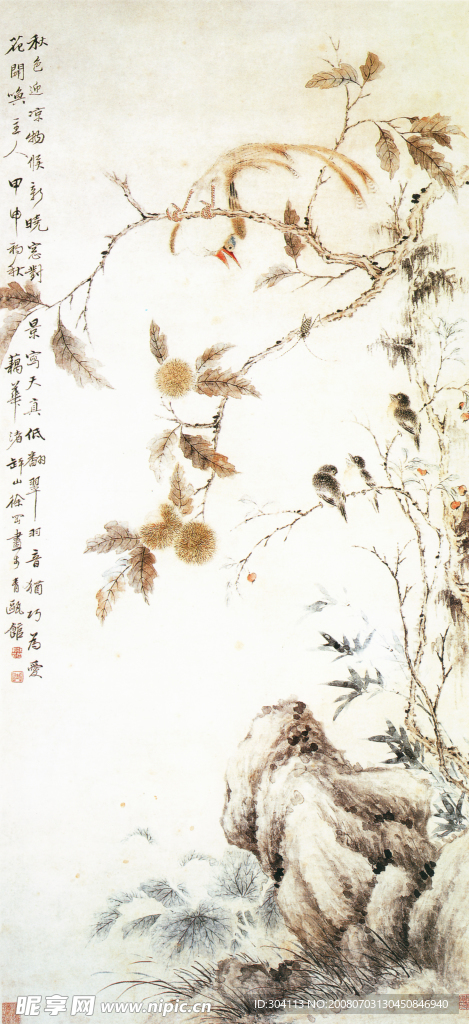 秋色迎凉物候新晓窓對景寫天真低翻翠羽音猶巧為愛
花開喚主人 甲申初秋 藕華渚銲山徐岡畫于青甌館
昵享网 www.nipic.cn
ID:304113 NO:20080703130450846940